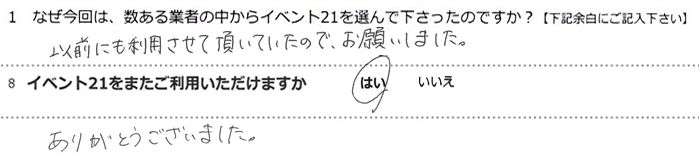 1 なぜ今回は、数ある業者の中からイベント21を選んで下さったのですか？【下記余白にご記入下さい】
以前にも利用させて頂いていたので、お願いしました。
8 イベント21をまたご利用いただけますか はい いいえ
ありがとうございました。